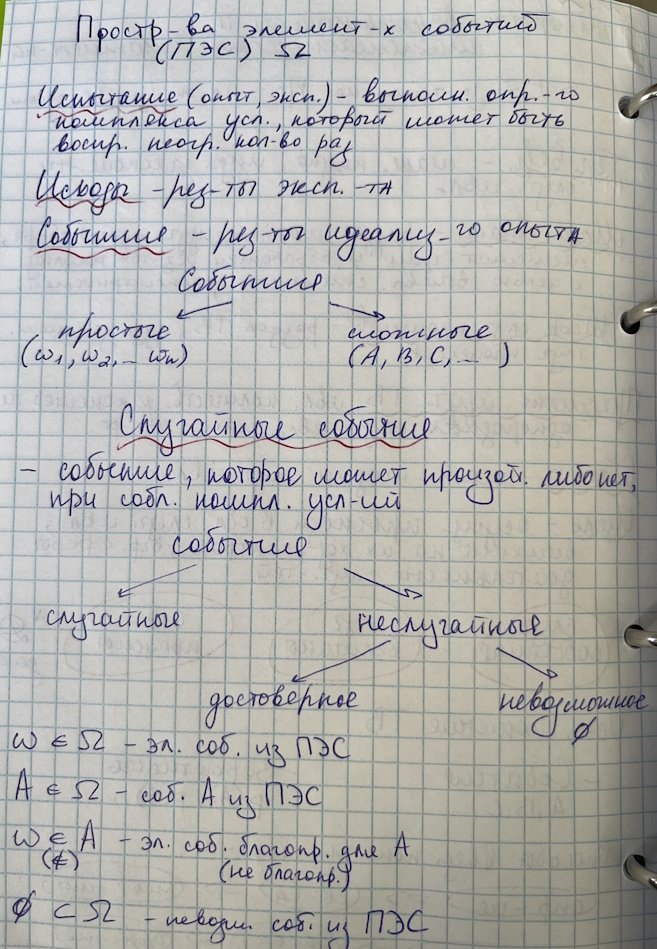 Простр-ва элемент-х событий
(ПЭС) Ω
Испытание (опыт, эксп.) - выполн. опр.-го
комплекса усл., который может быть
воспр. неогр. кол-во раз
Исходы - рез-ты эксп. -та
Событие - рез-ты идеализ-го опыта
События
простые сложные
(ω₁, ω₂, ... ωₙ) (A, B, C, ... )
Случайные события
- событие, которое может произой. либо нет,
при собл. компл. усл-ий
события
случайные неслучайные
достоверное невозможное
∅
ω ∈ Ω - эл. соб. из ПЭС
A ∈ Ω - соб. A из ПЭС
ω ∈ A - эл. соб. благопр. для A
(∉) (не благопр.)
∅ ⊂ Ω - невозм. соб. из ПЭС